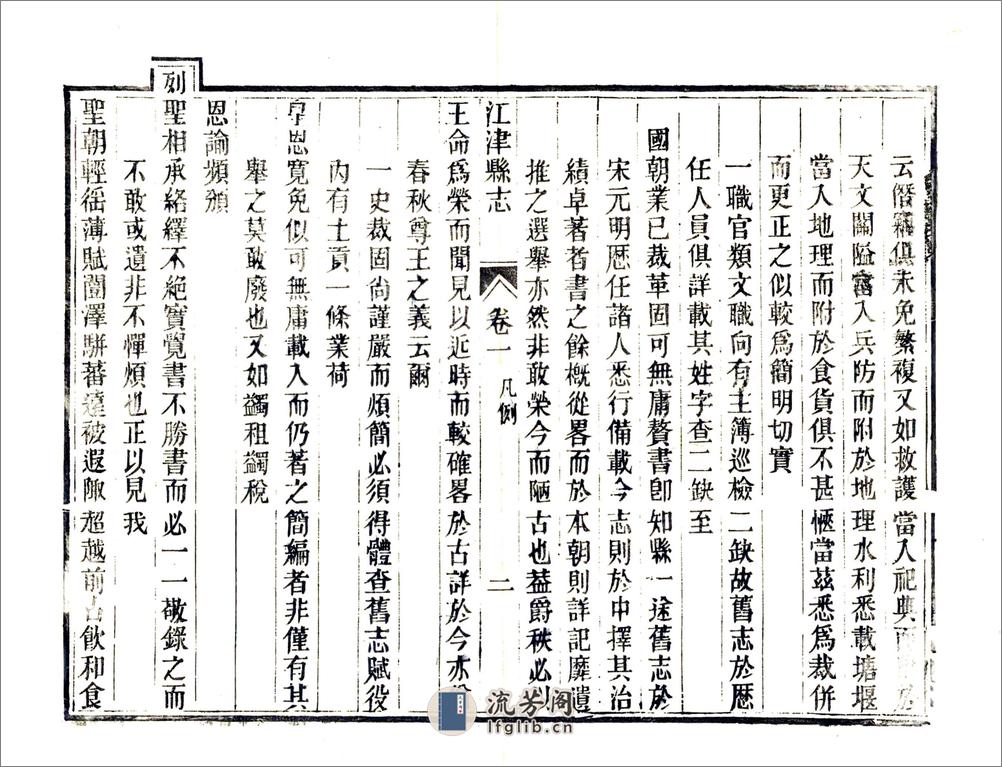 云僭竊俱未免繁複又如救護當入祀典而
天文關隘當入兵防而附於地理水利悉載塘堰
當入地理而附於食貨俱不甚愜當茲悉爲裁併
而更正之似較爲簡明切實
一職官類文職向有主簿巡檢二缺故舊志於歷
任人員俱詳載其姓字查二缺至
國朝業已裁革固可無庸贅書卽知縣一途舊志於
宋元明歷任諸人悉行備載今志則於中擇其治
績卓著者書之餘槪從畧而於本朝則詳記靡遺
推之選舉亦然非敢榮今而陋古也益爵秩必以
江津縣志 卷一 凡例 二
王命爲榮而聞見以近時而較確畧於古詳於今亦
春秋尊王之義云爾
一史裁固尙謹嚴而煩簡必須得體查舊志賦役
內有土貢一條業荷
皇恩寬免似可無庸載入而仍著之簡編者非僅有其
舉之莫敢廢也又如蠲租蠲稅
恩諭頻頒
列聖相承絡繹不絕實覺書不勝書而必一一敬錄之而
不敢或遺非不憚煩也正以見我
聖朝輕徭薄賦闓澤駢蕃遠被遐陬超越前古飲和食
流芳阁
lfglib.cn